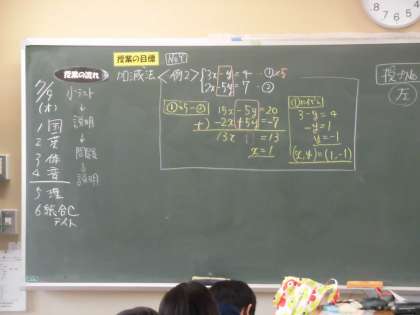 授業の流れ
7/9
(木)
1 国
2 英
3 体
4 音
5 理
6 総合C
テイト
小テスト
↓
説明
↓
問題
↓
説明
授業の目標
No.9
加減法 <例2>
3x-y=4 …①×5
2x-5y=7 …②
①×5-②
15x-5y=20
+) -2x+5y=-7
13x =13
x=1
3-y=4
-y=1
y=-1
(x,y)=(1,-1)